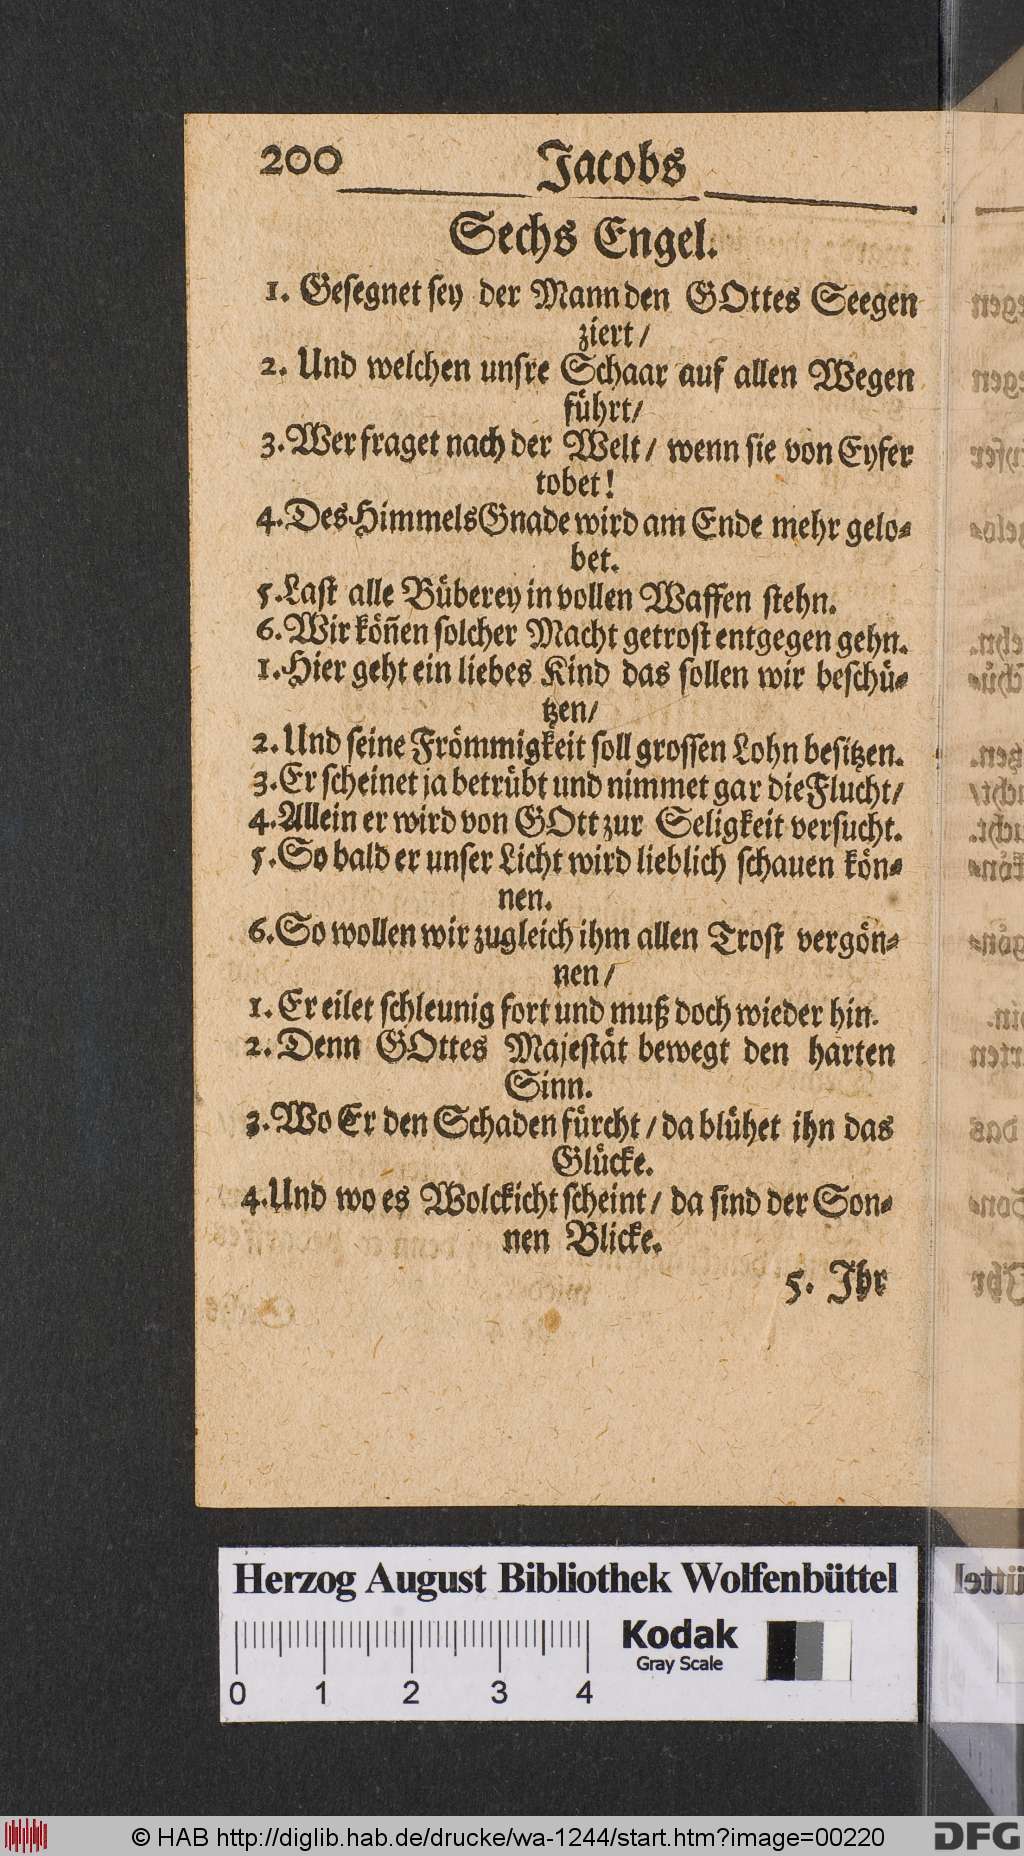 200 Jacobs
Sechs Engel.
1. Gesegnet sey der Mann den GOttes Seegen
ziert/
2. Und welchen unsre Schaar auf allen Wegen
führt/
3. Wer fraget nach der Welt/ wenn sie von Eyfer
tobet!
4. Des Himmels Gnade wird am Ende mehr gelo-
bet.
5. Last alle Büberey in vollen Waffen stehn.
6. Wir köñen solcher Macht getrost entgegen gehn.
1. Hier geht ein liebes Kind das sollen wir beschü-
tzen/
2. Und seine Frömmigkeit soll grossen Lohn besitzen.
3. Er scheinet ja betrübt und nimmet gar die Flucht/
4. Allein er wird von GOtt zur Seligkeit versucht.
5. So bald er unser Licht wird lieblich schauen kön-
nen.
6. So wollen wir zugleich ihm allen Trost vergön-
nen/
1. Er eilet schleunig fort und muß doch wieder hin.
2. Denn GOttes Majestät bewegt den harten
Sinn.
3. Wo Er den Schaden fürcht/ da blühet ihn das
Glücke.
4. Und wo es Wolckicht scheint/ da sind der Son-
nen Blicke.
5. Ihr
Herzog August Bibliothek Wolfenbüttel
Kodak
Gray Scale
0 1 2 3 4
© HAB http://diglib.hab.de/drucke/wa-1244/start.htm?image=00220
DFG